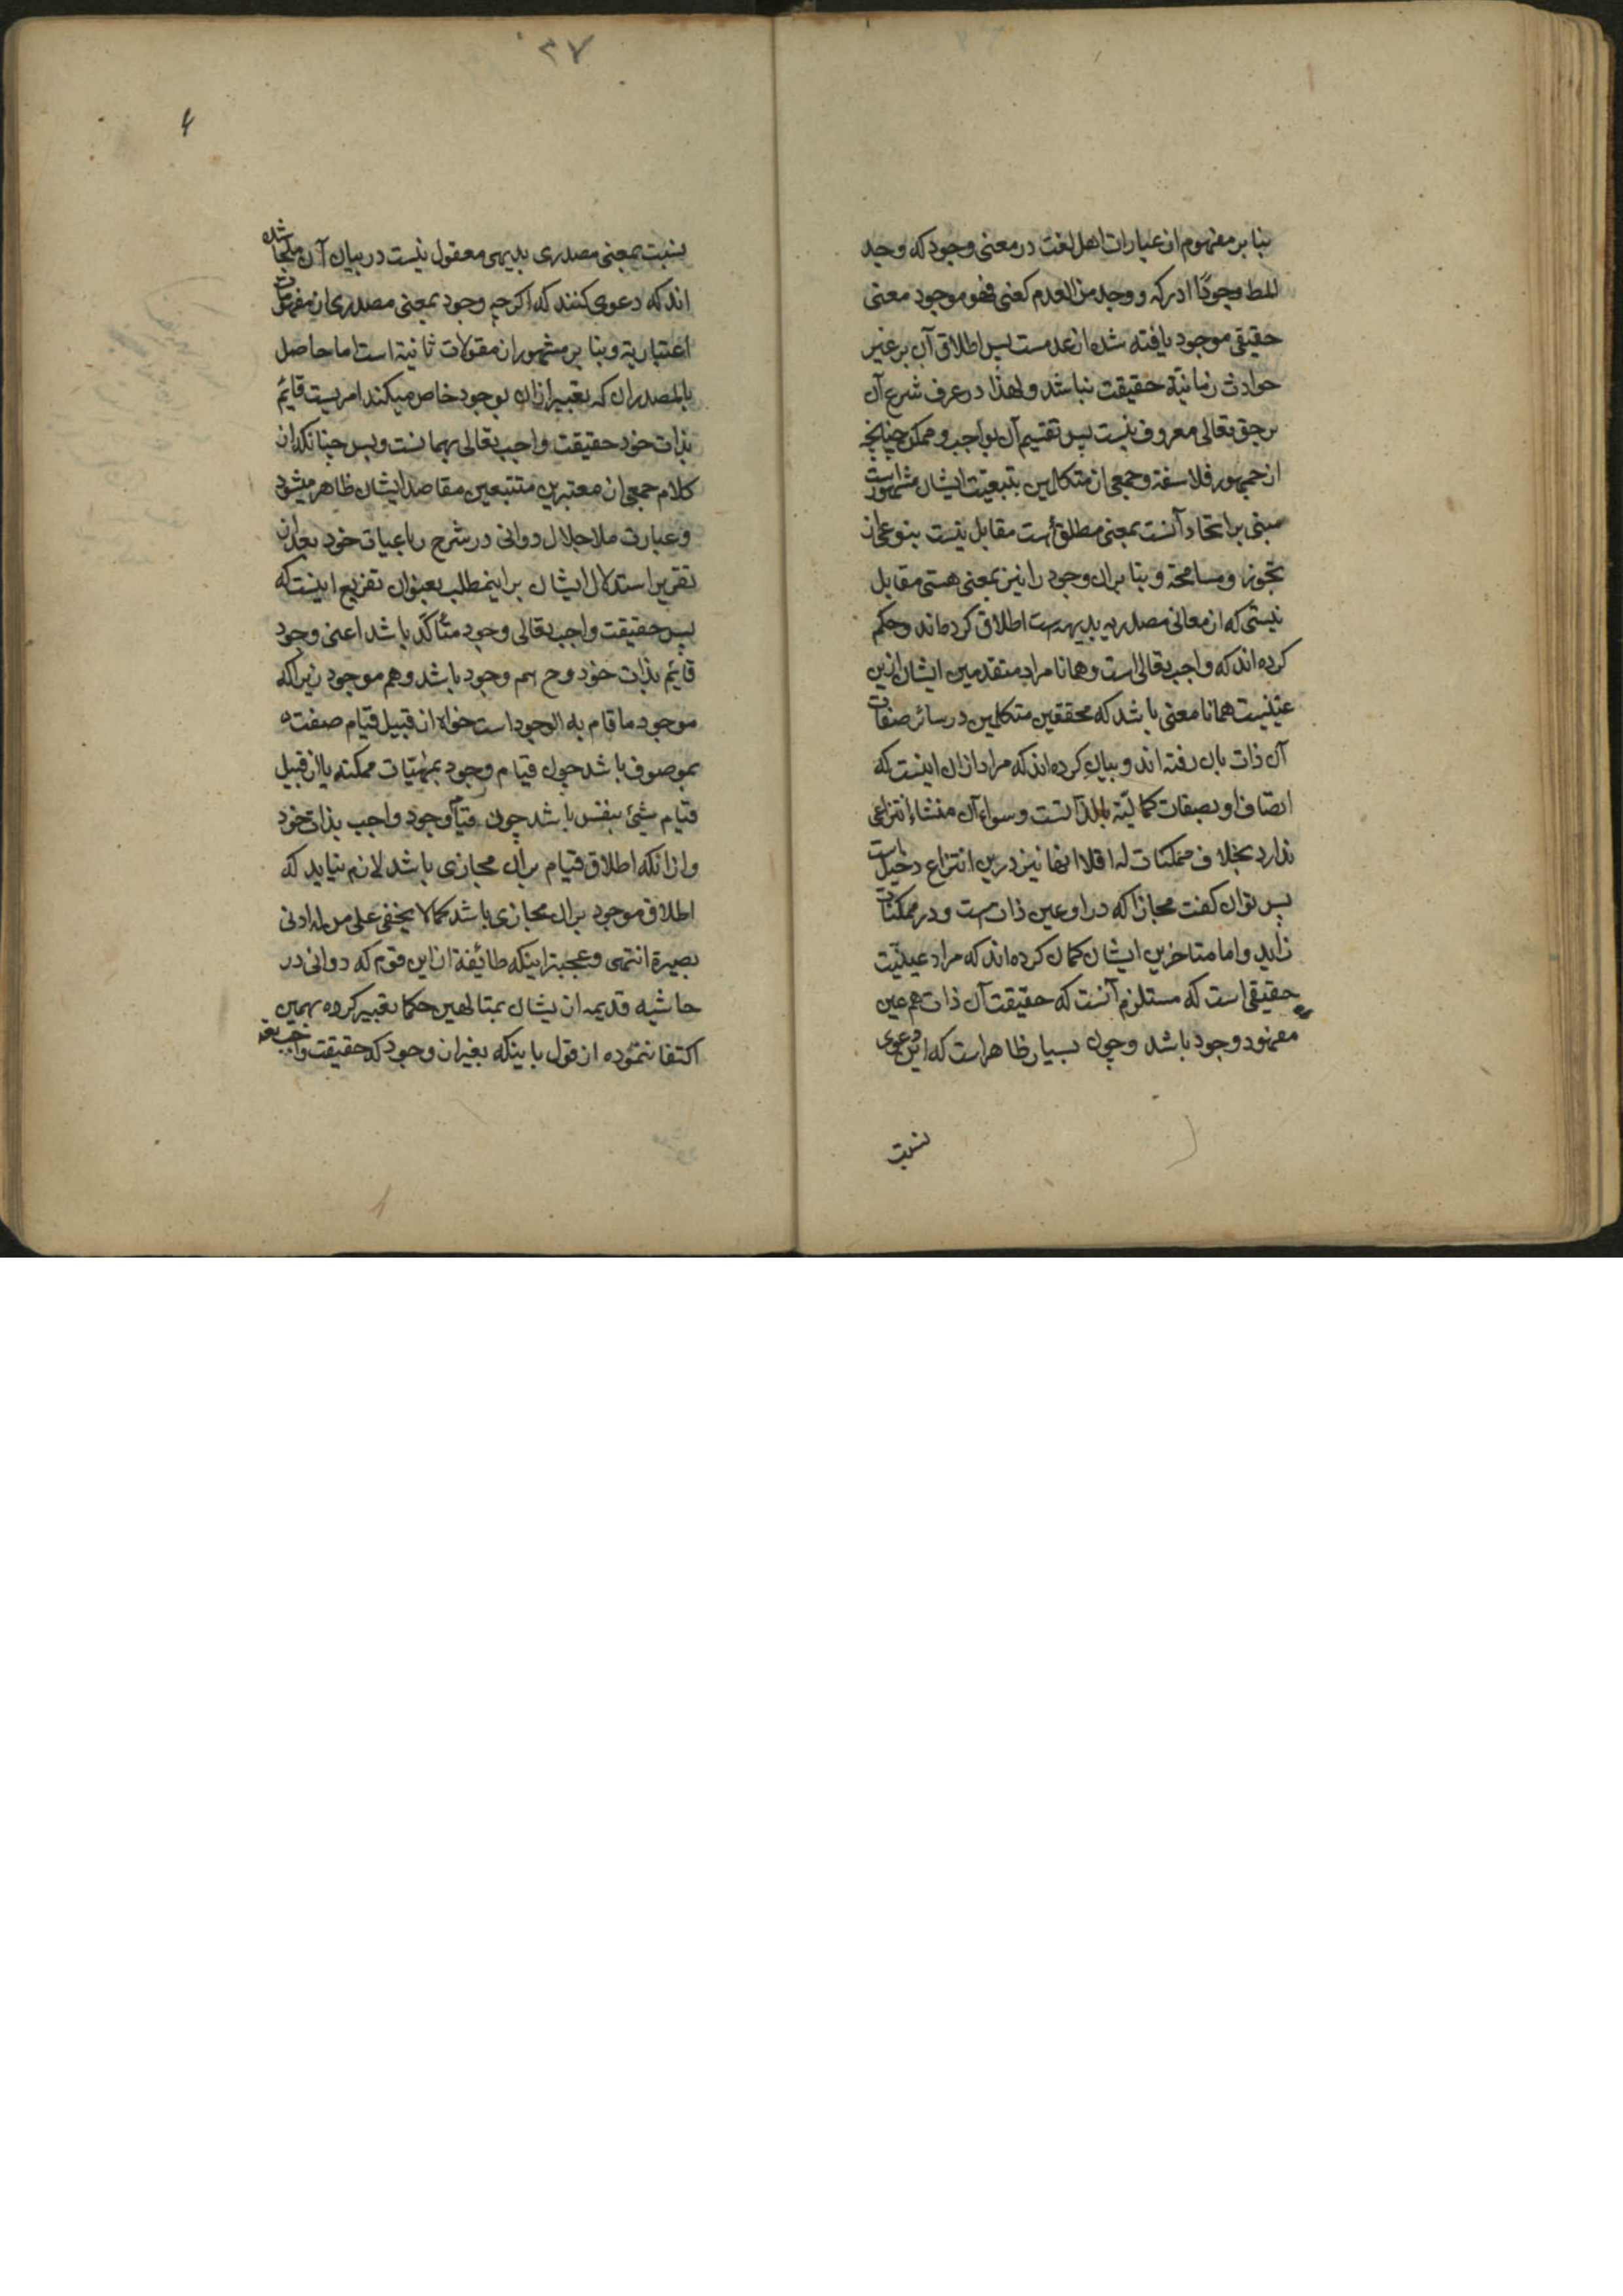 بنا بر مفهوم از عبارات اهل لغت در معنی وجود که وجد
المط وجودًا ادرکه و وجد من العدم کعنی فهو موجود معنی
حقیقی موجود یافته شده از عدمست پس اطلاق آن بر غیر
حوادث زمانیّة حقیقت نباشد و لهذا در عرف شرع آن
بر حق تعالی معروف نیست پس تقسیم آن بواجب و ممکن چنانچه
از جمهور فلاسفة و جمعی از متکلمین بتبعیت ایشان مشهور است
مبنی بر اتحاد آنست بمعنی مطلق هست مقابل نیست بنوعی از
تجوز و مسامحة و بنا بران وجود را نیز بمعنی هستی مقابل
نیستی که از معانی مصدریه بدیهیه است اطلاق کرده‌اند و حکم
کرده‌اند که واجب تعالی است و همانا مراد متقدمین ایشان ازین
عینیت همانا معنی باشد که محققین متکلمین در سائر صفات
آن ذات بان رفته‌اند و بیان کرده‌اند که مراد ازان اینست که
اتصاف او بصفات کمالیّة بالذاتست و سواء آن منشاء انتزاعی
ندارد بخلاف ممکنات که اقلا انها نیز درین انتزاع دخیل است
پس توان کفت مجازا که در او عین ذات است و در ممکنات
زاید و اما متاخرین ایشان کمان کرده‌اند که مراد عینیّت
حقیقی است که مستلزم آنست که حقیقت آن ذات هم عین
مفهود وجود باشد و چون بسیار ظاهر است که این دعوی
نسبت
۲۷
۴
نسبت بمعنی مصدری بدیهی معقول نیست در بیان آن ملجا شده
اند که دعوی کنند که اکرچه وجود بمعنی مصدری از مفهومات
اعتباریة و بنا بر مشهور از مقولات ثانیة است اما حاصل
بالمصدر ان که تعبیر ازان بوجود خاص میکند امریست قائم
بذات خود حقیقت واجب تعالی همانست و بس چنانکه از
کلام جمعی از معتبرین متتبعین مقاصد ایشان ظاهر میشود
و عبارت ملا جلال دوانی در شرح رباعیات خود بعد از
تقریر استدلال ایشان بر اینمطلب بعنوان تفریع اینست که
پس حقیقت واجب تعالی وجود متأکّد باشد اعنی وجود
قائم بذات خود و ح هم وجود باشد و هم موجود زیراکه
موجود ما قام به الوجود است خواه از قبیل قیام صفت
بموصوف باشد چون قیام وجود بمهیّات ممکنه یا از قبیل
قیام شیء بنفس باشد چون قیام وجود واجب بذات خود
و ازانکه اطلاق قیام بران مجازی باشد لازم نیاید که
اطلاق موجود بران مجازی باشد کما لا یخفی علی من له ادنی
بصیرة انتهی و عجبتر اینکه طائفة از این قوم که دوانی در
حاشیه قدیمه ازیشان بمتالهین حکما تعبیر کرده بهمین
اکتفا ننموده از قول باینکه بغیر از وجود که حقیقت واجب تعه